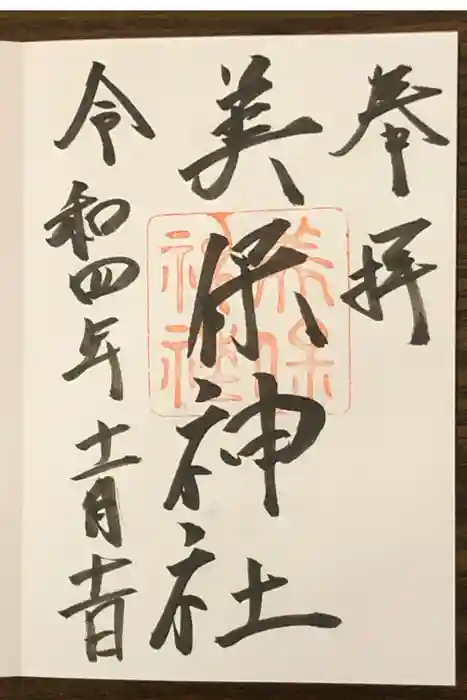 奉拝
美保神社
美保
神社
令和四年十一月十一日